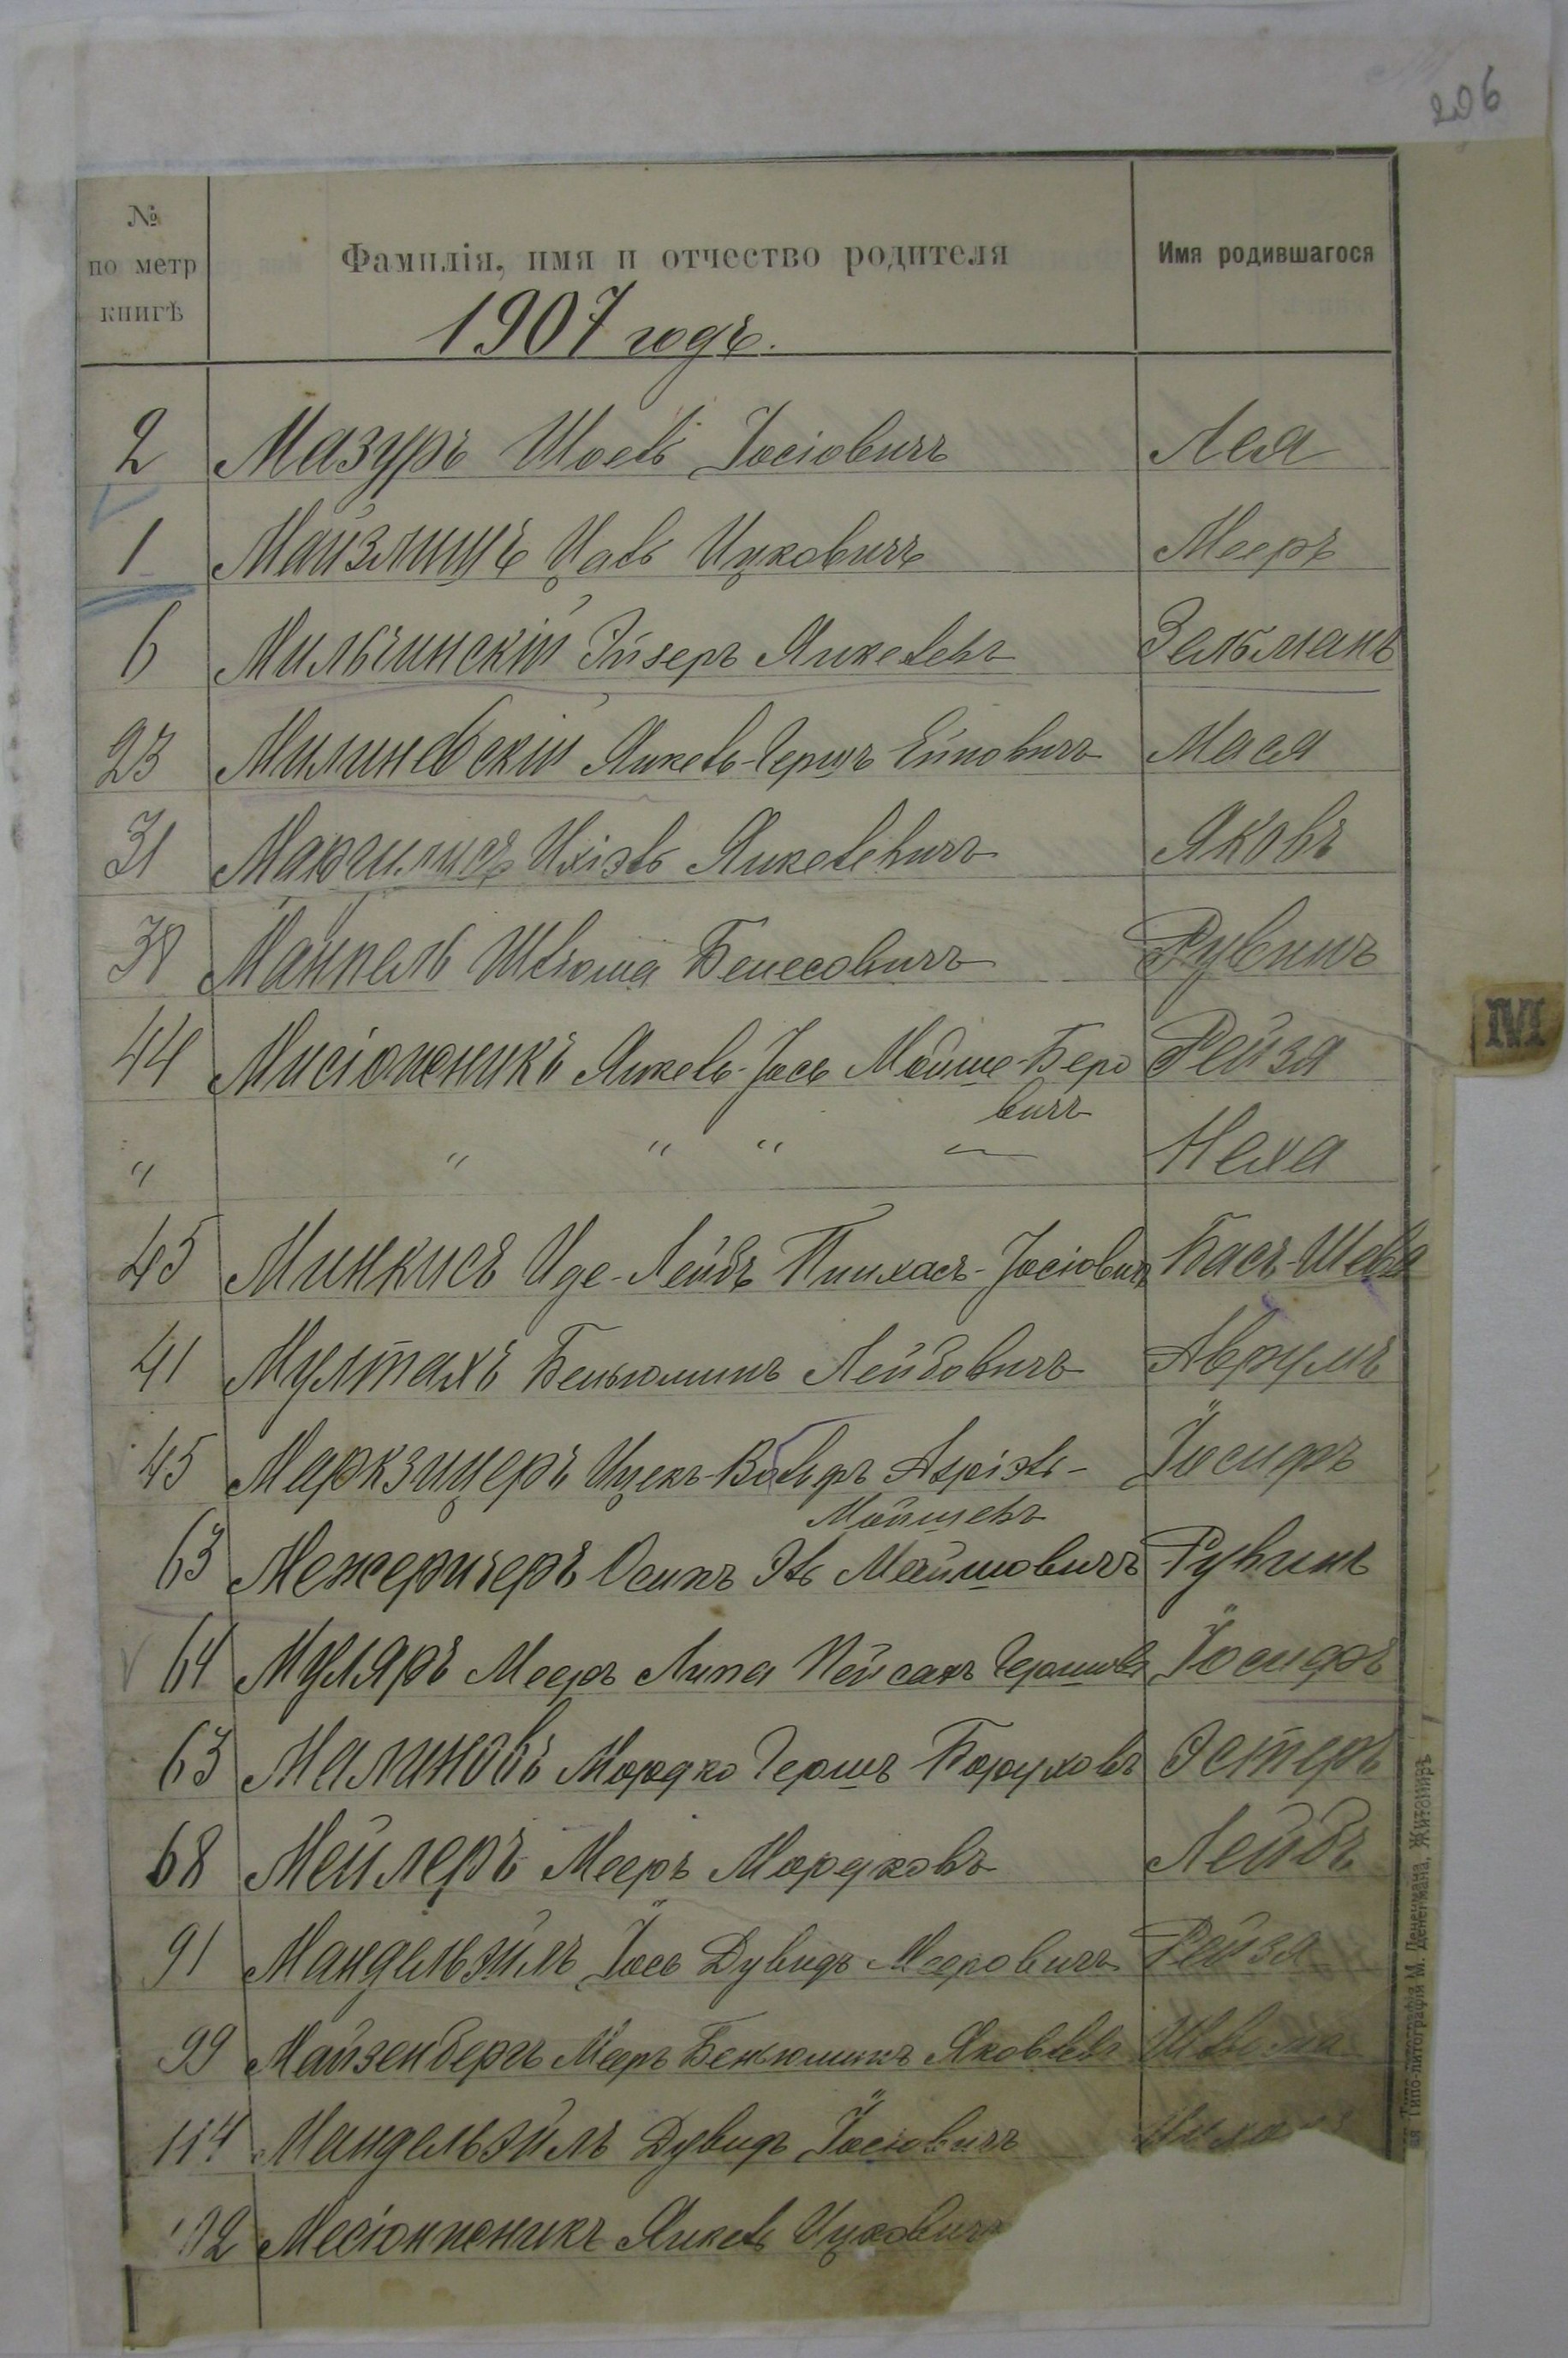 206
№ по метр книгѣ Фамилія, имя и отчество родителя Имя родившагося
1907 годъ.
2 Мазуръ Шоель Іосіовичъ Лея
1 Майзлишъ Цаль Ицковичъ Мееръ
6 Мильчинскій Эйзеръ Янкелевъ Зельманъ
23 Милиневскій Янкель-Гершъ Ейновичъ Мася
31 Маргулисъ Ихіэль Янкелевичъ Яковъ
38 Манпель Шлиома Бенесовичъ Рувинъ
44 Мисіожникъ Янкель-Іось Мойше-Беро Рейзя
вичъ
" " " " — Неха
45 Минкисъ Иде-Лейбъ Пинхасъ-Іосіовичъ Бася-Шева
41 Мултахъ Беньюминъ Лейбовичъ Аврумъ
45 Маркзицеръ Ицекъ-Вольфъ Азріэль- Іосифъ
Мойшевъ
63 Межеричеръ Осипъ Эль Мойшовичъ Рувинъ
64 Муляръ Мееръ Липа Пейсахъ Гершовъ Іосифъ
63 Малиновъ Мордко Гершъ Боруховъ Эстеръ
68 Мейлеръ Мееръ Мордковъ Лейбъ
91 Мандельэйлъ Іось Дувидъ Мееровичъ Рейзя
99 Майзенбергъ Мееръ Беньюминъ Яковлевъ Шлиома
114 Мандельэйлъ Дувидъ Іосіовичъ
Месіонжникъ Янкель Ицковичъ
M
Типо-литографія М. Денемана, Житоміръ